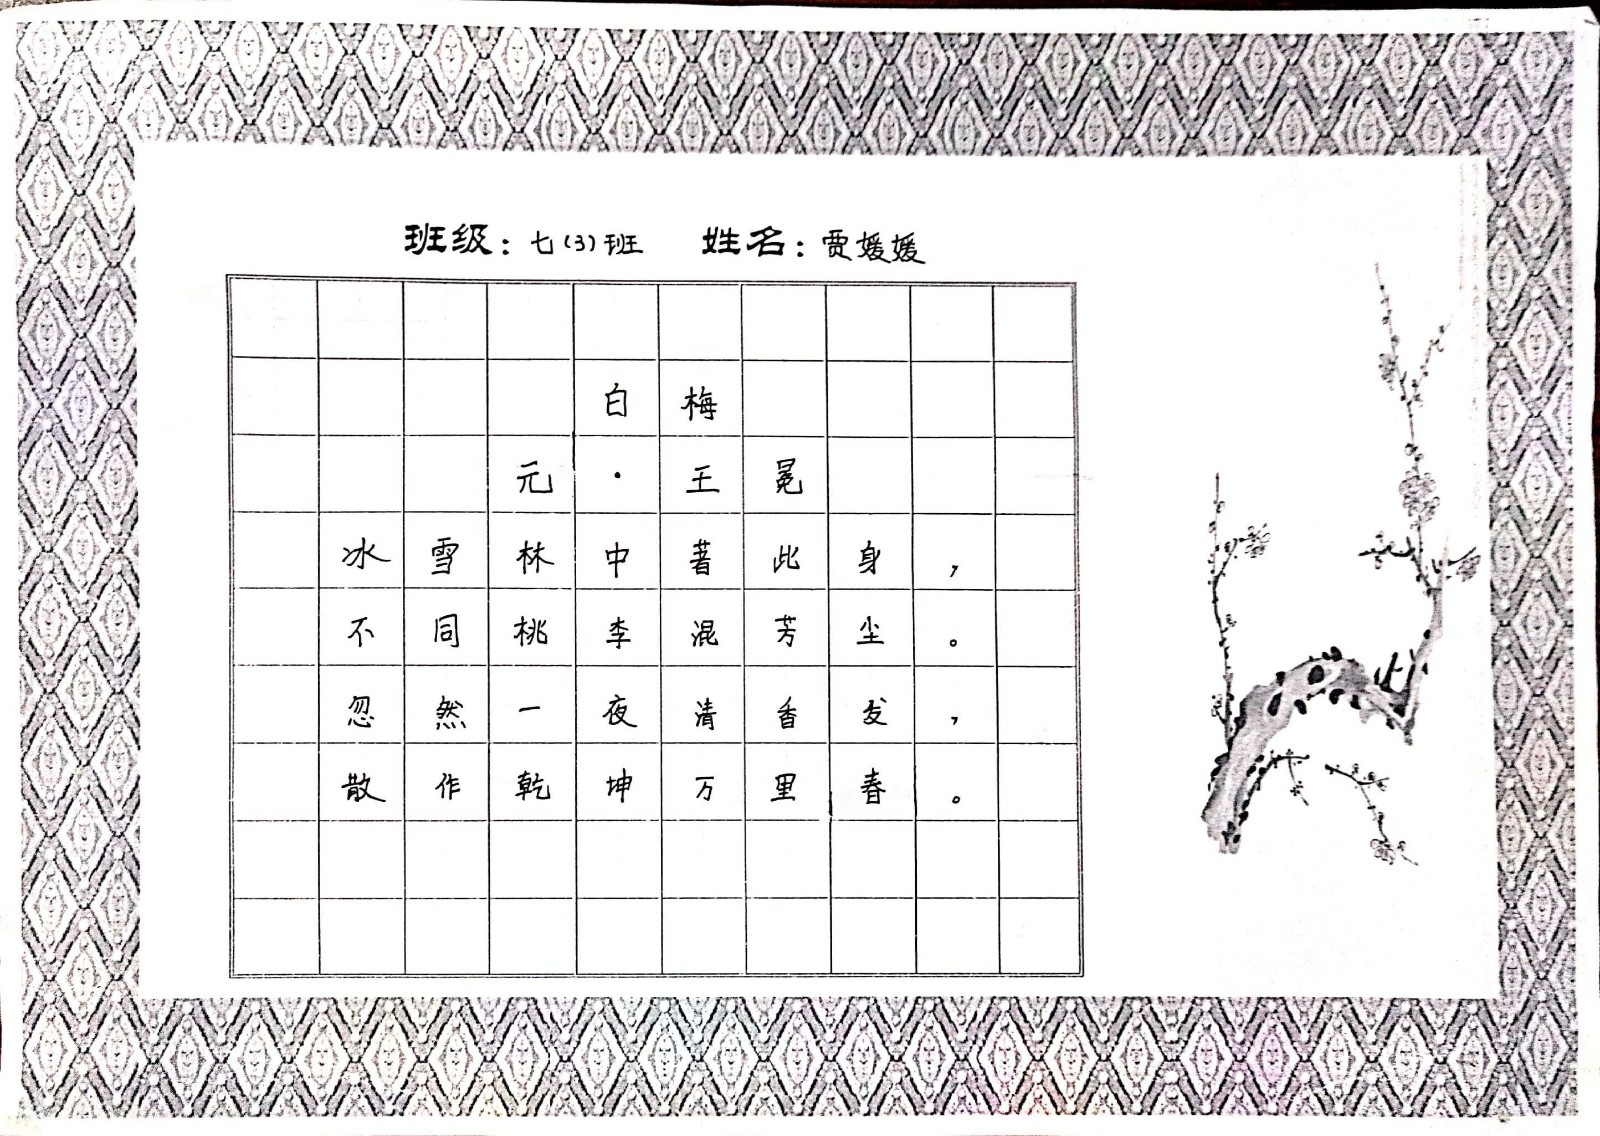 班级：七（3）班 姓名：贾媛媛
白梅
元·王冕
冰雪林中著此身，
不同桃李混芳尘。
忽然一夜清香发，
散作乾坤万里春。